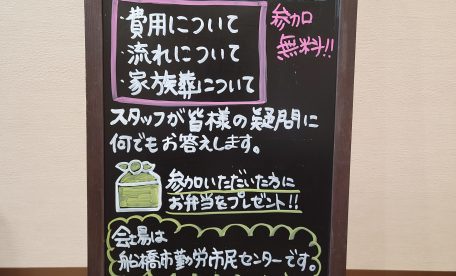 ・費用について
・流れについて
・家族葬について
参加
無料!!
スタッフが皆様の疑問に
何でもお答えします。
参加いただいた方に
お弁当をプレゼント!!
会場は
船橋市勤労市民センターです。